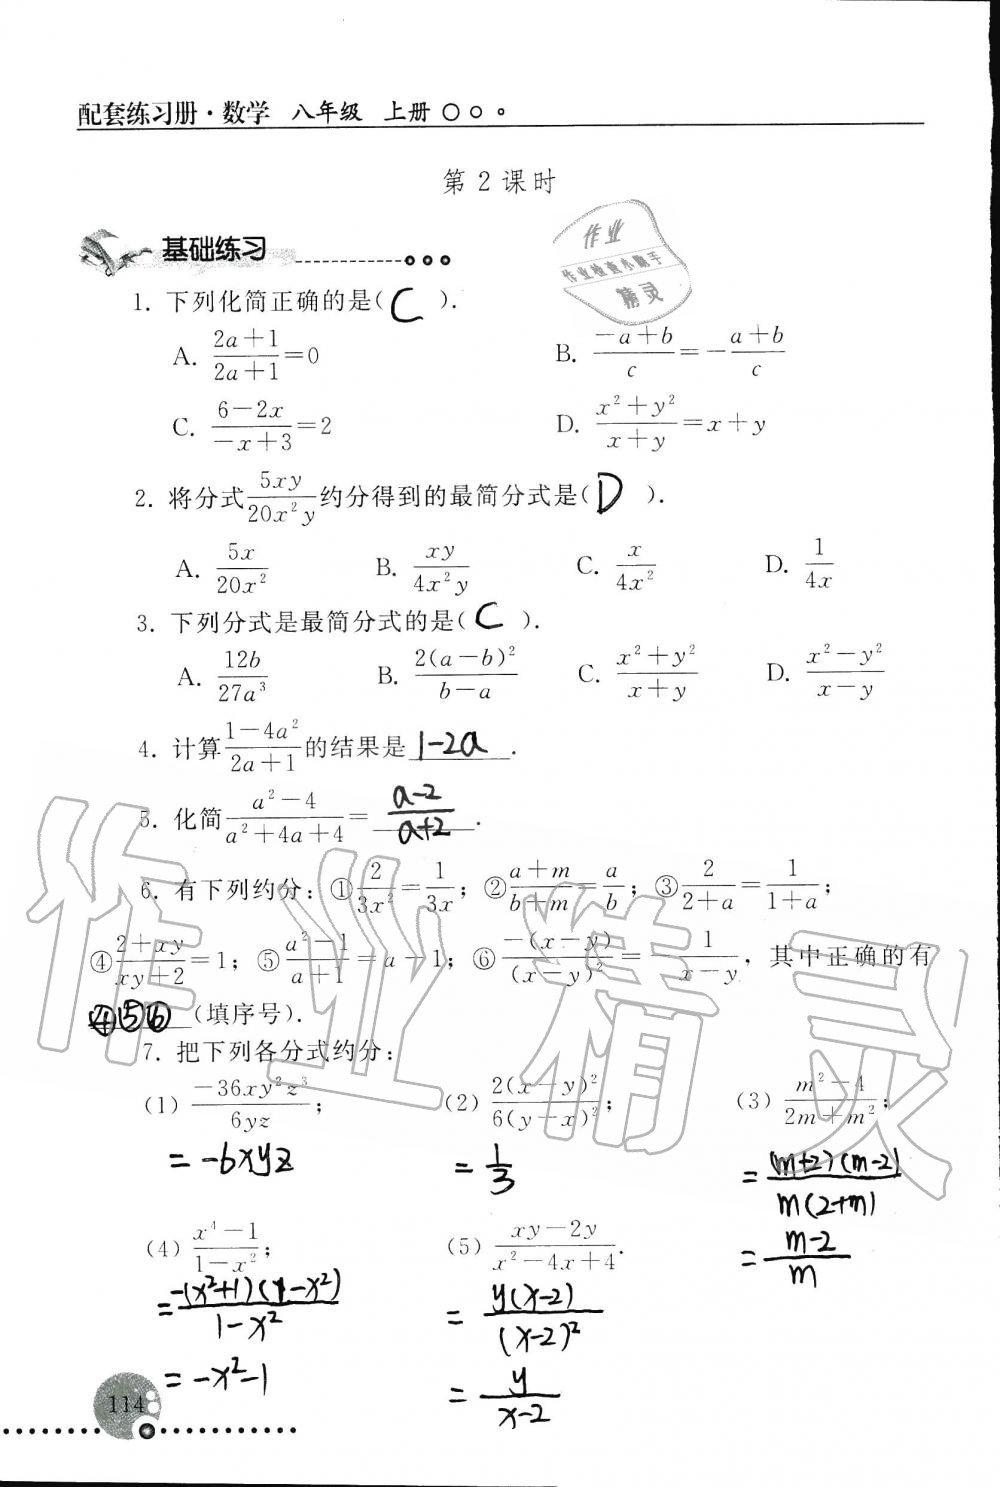 配套练习册·数学 八年级 上册
第2课时
作业
作业检查小助手
精灵
基础练习
1. 下列化简正确的是( C ).
A. \frac{2a+1}{2a+1}=0 B. \frac{-a+b}{c}=-\frac{a+b}{c}
C. \frac{6-2x}{-x+3}=2 D. \frac{x^2+y^2}{x+y}=x+y
2. 将分式\frac{5xy}{20x^2y}约分得到的最简分式是( D ).
A. \frac{5x}{20x^2} B. \frac{xy}{4x^2y} C. \frac{x}{4x^2} D. \frac{1}{4x}
3. 下列分式是最简分式的是( C ).
A. \frac{12b}{27a^3} B. \frac{2(a-b)^2}{b-a} C. \frac{x^2+y^2}{x+y} D. \frac{x^2-y^2}{x-y}
4. 计算\frac{1-4a^2}{2a+1}的结果是 1-2a .
5. 化简\frac{a^2-4}{a^2+4a+4}=\frac{a-2}{a+2}.
6. 有下列约分:①\frac{2}{3x^2}=\frac{1}{3x};②\frac{a+m}{b+m}=\frac{a}{b};③\frac{2}{2+a}=\frac{1}{1+a};
④\frac{2+xy}{xy+2}=1;⑤\frac{a^2-1}{a+1}=a-1;⑥\frac{-(x-y)}{(x-y)^2}=\frac{1}{x-y},其中正确的有
④⑤⑥(填序号).
7. 把下列各分式约分:
(1) \frac{-36xy^2z^3}{6yz}; (2) \frac{2(x-y)^2}{6(y-x)^2}; (3) \frac{m^2-4}{2m+m^2};
=-6xyz =\frac{1}{3} =\frac{(m+2)(m-2)}{m(2+m)}
=\frac{m-2}{m}
(4) \frac{x^4-1}{1-x^2}; (5) \frac{xy-2y}{x^2-4x+4}.
=\frac{-(x^2+1)(1-x^2)}{1-x^2} =\frac{y(x-2)}{(x-2)^2}
=-x^2-1 =\frac{y}{x-2}
114
作业精灵